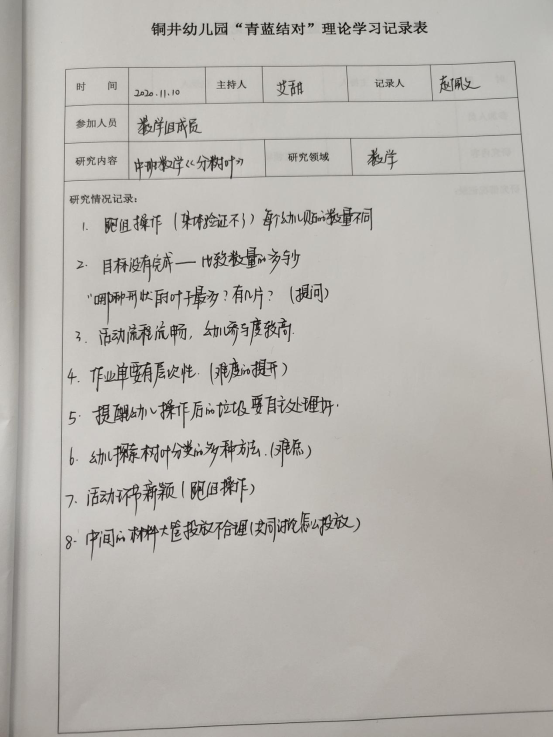 铜井幼儿园“青蓝结对”理论学习记录表
时 间 2020.11.10 主持人 艾甜 记录人 赵佩文
参加人员 数学组成员
研究内容 中班数学《分树叶》 研究领域 数学
研究情况记录：
1. 跑组操作（集体验证不了）每个幼儿贴的数量不同
2. 目标没有完成——比较数量的多与少
“哪种形状的叶子最多？有几片？（提问）
3. 活动流程流畅，幼儿参与度较高.
4. 作业单要有层次性.（难度的提升）
5. 提醒幼儿操作后的垃圾要自主处理好.
6. 幼儿探索树叶分类的多种方法.（难点）
7. 活动环节新颖（跑组操作）
8. 中间的材料大筐投放不合理（共同讨论怎么投放）